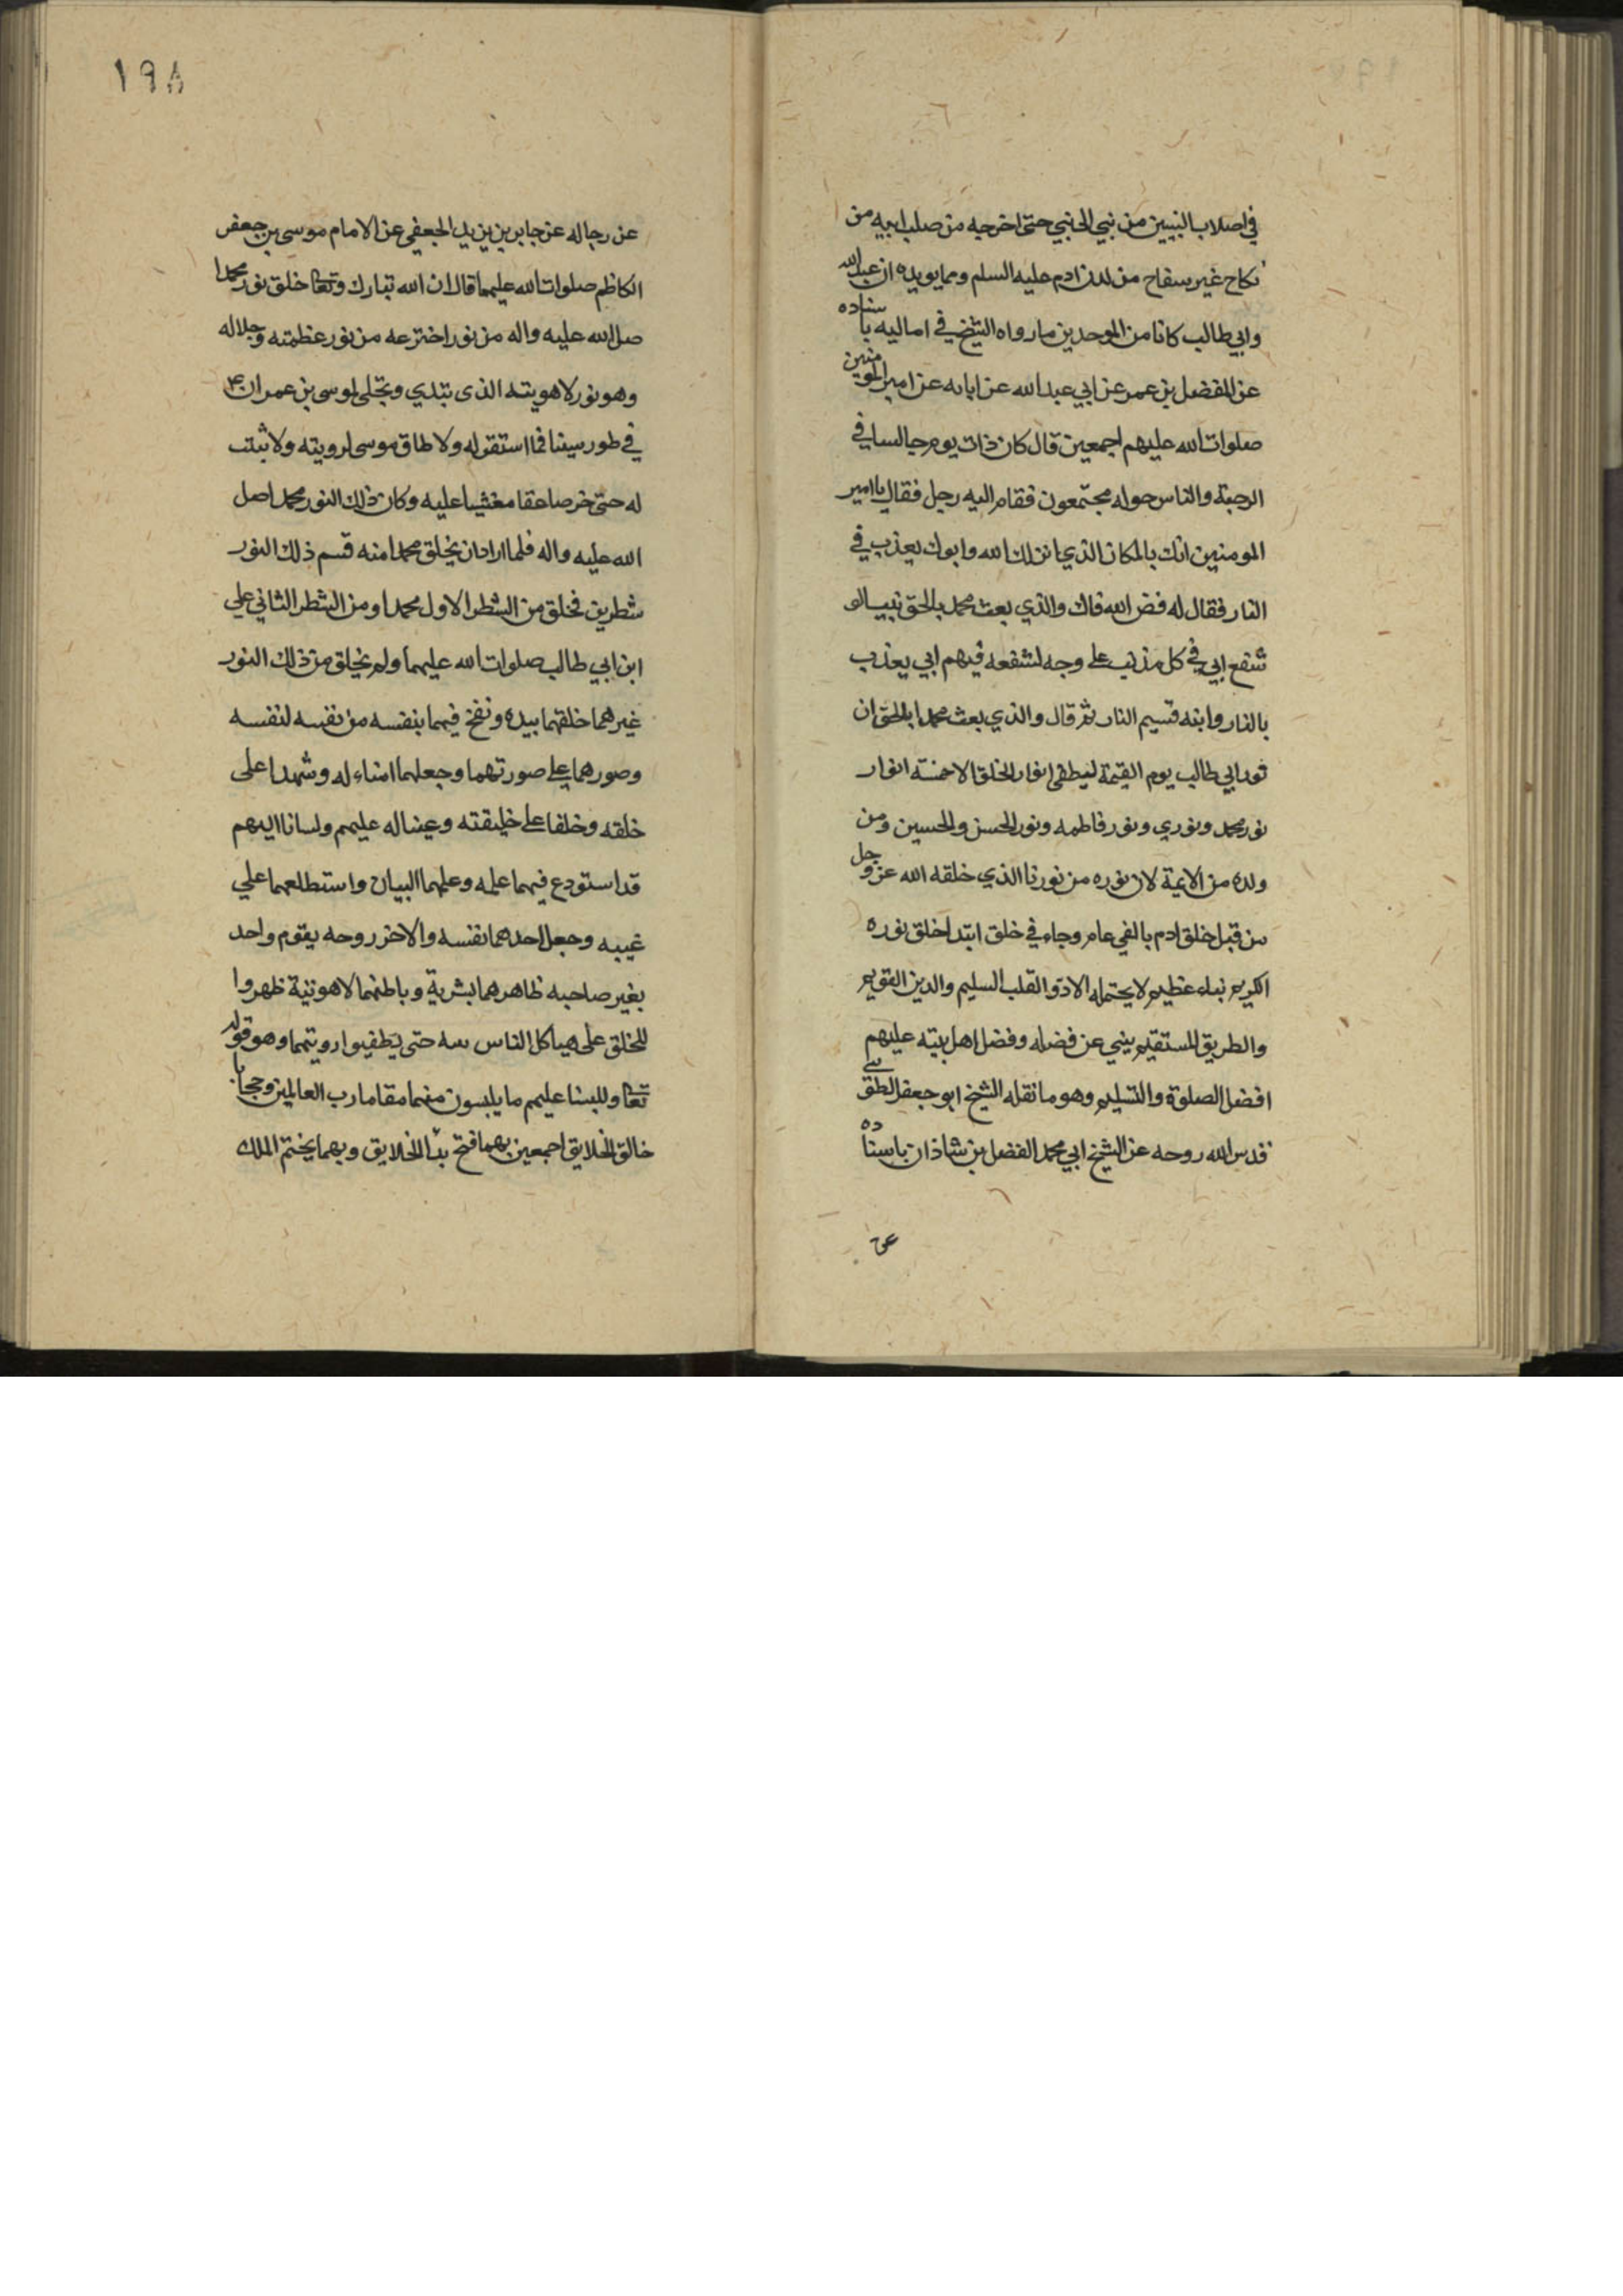 في اصلاب النبيين من نبي الى نبي حتى اخرجه من صلب ابيه من
نكاح غير سفاح من لدن ادم عليه السلم ومما يويده ان عبد الله
وابي طالب كانا من الموحدين ما رواه الشيخ في اماليه باسناده
عن المفضل بن عمر عن ابي عبد الله عن ابايه عن امير المومنين
صلوات الله عليهم اجمعين قال كان ذات يوم جالسا في
الرحبة والناس حوله مجتمعون فقام اليه رجل فقال يا امير
المومنين انك بالمكان الذي انزلك الله وابوك يعذب في
النار فقال له فض الله فاك والذي بعث محمد بالحق نبيا لو
شفع ابي في كل مذنب على وجه لشفعه فيهم ابي يعذب
بالنار وابنه قسيم النار ثم قال والذي بعث محمدا بالحق ان
نور ابي طالب يوم القيمة ليطفي انوار الخلق الا خمسة انوار
نور محمد ونوري ونور فاطمه ونور الحسن والحسين ومن
ولده من الايمة لان نوره من نورنا الذي خلقه الله عز وجل
من قبل خلق ادم بالفي عام وجاء في خلق ابتدا خلق نوره
الكريم نباء عظيم لا يحتمله الا ذو القلب السليم والدين القويم
والطريق المستقيم ينبي عن فضله وفضل اهل بيته عليهم
افضل الصلوة والتسليم وهو ما نقله الشيخ ابو جعفر الطوسي
قدس الله روحه عن الشيخ ابي محمد الفضل بن شاذان باسناده
عن
١٩٨
عن رجاله عن جابر بن يزيد الجعفي عن الامام موسى بن جعفر
الكاظم صلوات الله عليهما قال ان الله تبارك وتعا خلق نور محمدا
صلى الله عليه واله من نور اخترعه من نور عظمته وجلاله
وهو نور لاهويته الذى تبدي وتجلى لموسى بن عمران ع
في طور سينا فما استقر له ولا طاق موسى لرويته ولا ثبتت
له حتى خر صاعقا مغشيا عليه وكان ذلك النور محمد اصل
الله عليه واله فلما اراد ان يخلق محمدا منه قسم ذلك النور
شطرين فخلق من الشطر الاول محمدا ومن الشطر الثاني علي
ابن ابي طالب صلوات الله عليهما ولم يخلق من ذلك النور
غيرهما خلقهما بيده ونفخ فيهما بنفسه من نفسه لنفسه
وصورهما على صورتهما وجعلهما امناء له وشهدا على
خلقه وخلفا على خليقته وعينا له عليهم ولسانا اليهم
قد استودع فيهما علمه وعلمهما البيان واستطلعهما علي
غيبه وجعل احدهما نفسه والاخر روحه يقوم واحد
بغير صاحبه ظاهرهما بشرية وباطنهما لاهوتية ظهروا
للخلق على هياكل الناس سه حتى يطفيوا رويتهما وهو قوله
تعا وللبسنا عليهم ما يلبسون منهما مقاما رب العالمين وحجابا
خالق الخلايق اجمعين بهما فتح بدا الخلايق وبهما يختم الملك